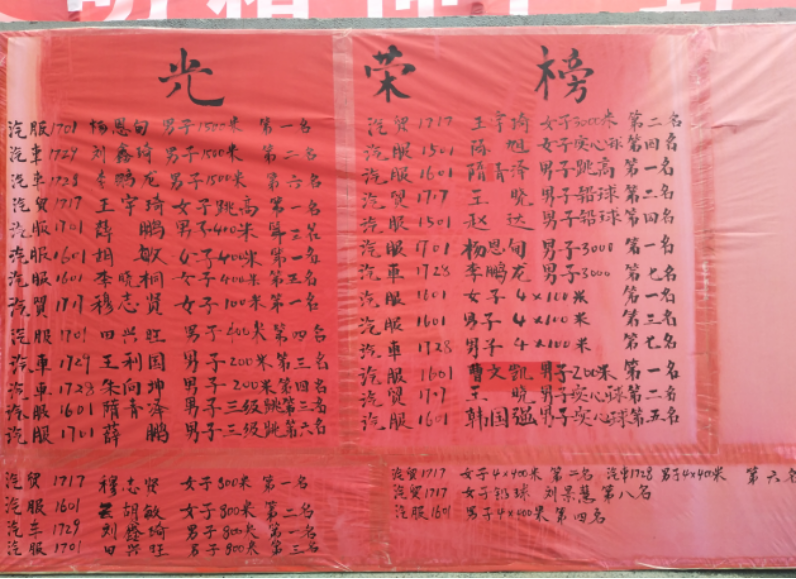 光荣榜
汽服1701 杨恩旬 男子1500米 第一名
汽車1729 刘鑫琦 男子1500米 第二名
汽車1728 李鹏龙 男子1500米 第六名
汽贸1717 王宇琦 女子跳高 第一名
汽服1701 薛鹏 男子400米 第三名
汽服1601 胡敏 女子400米 第一名
汽服1601 李晓桐 女子400米 第五名
汽贸1717 穆志贤 女子100米 第一名
汽服1701 田兴旺 男子200米 第四名
汽車1729 王利国 男子200米 第三名
汽車1728 朱向坤 男子200米 第四名
汽服1601 隋青泽 男子三级跳第三名
汽服1701 薛鹏 男子三级跳第六名
汽贸1717 王宇琦 女子3000米 第二名
汽服1501 陈旭 女子实心球 第四名
汽服1601 隋青泽 男子跳高 第一名
汽贸1717 王晓 男子铅球 第二名
汽服1501 赵达 男子铅球 第四名
汽服1701 杨恩旬 男子3000 第一名
汽車1728 李鹏龙 男子3000 第七名
汽服1601 女子4×100米 第一名
汽服1601 男子4×100米 第三名
汽車1728 男子4×100米 第七名
汽服1601 曹文凯 男子200米 第一名
汽贸1717 王晓 男子实心球第二名
汽服1601 韩国强 男子实心球第五名
汽贸1717 穆志贤 女子800米 第一名
汽服1601 胡敏 女子800米 第二名
汽车1729 刘鑫琦 男子800米 第一名
汽服1701 田兴旺 男子800米 第三名
汽贸1717 女子4×400米 第二名 汽車1728 男子4×400米 第六名
汽贸1717 女子铅球 刘景慧 第八名
汽服1601 男子4×400米 第四名